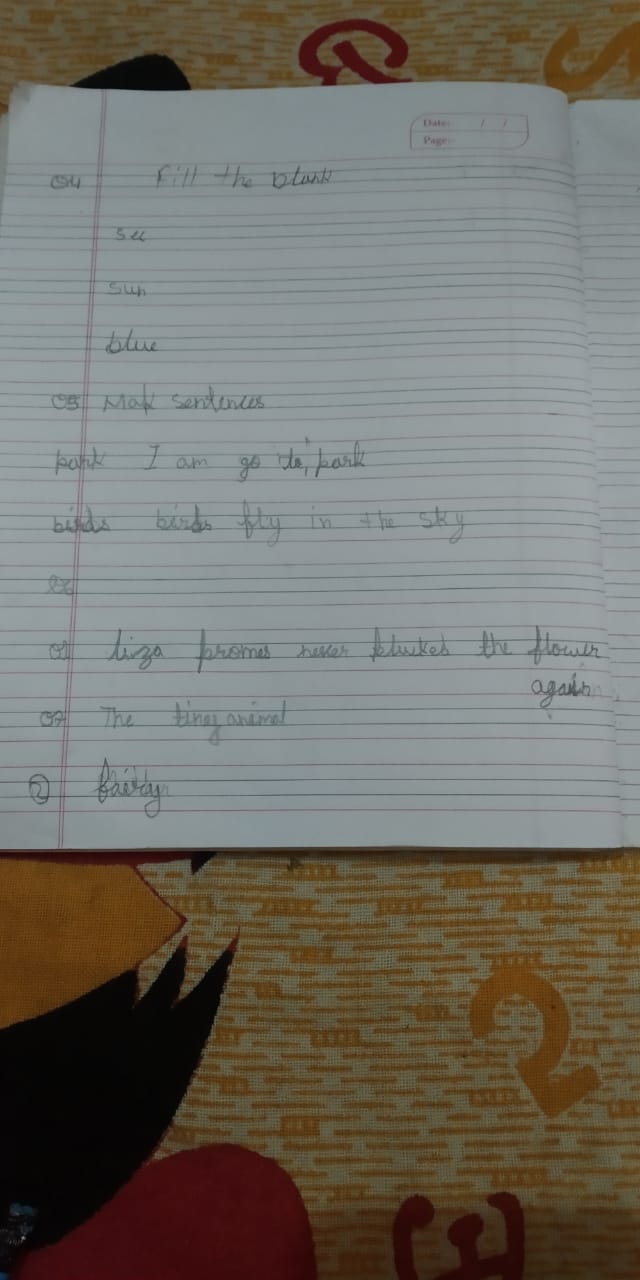 Date: / /
Page:
Q4 Fill the blank
see
sun
blue
Q5 Mak sentences
park I am go to park
birds birds fly in the sky
Q6
Q1 liza promes never the flower
again
Q2 The tiney animal
②